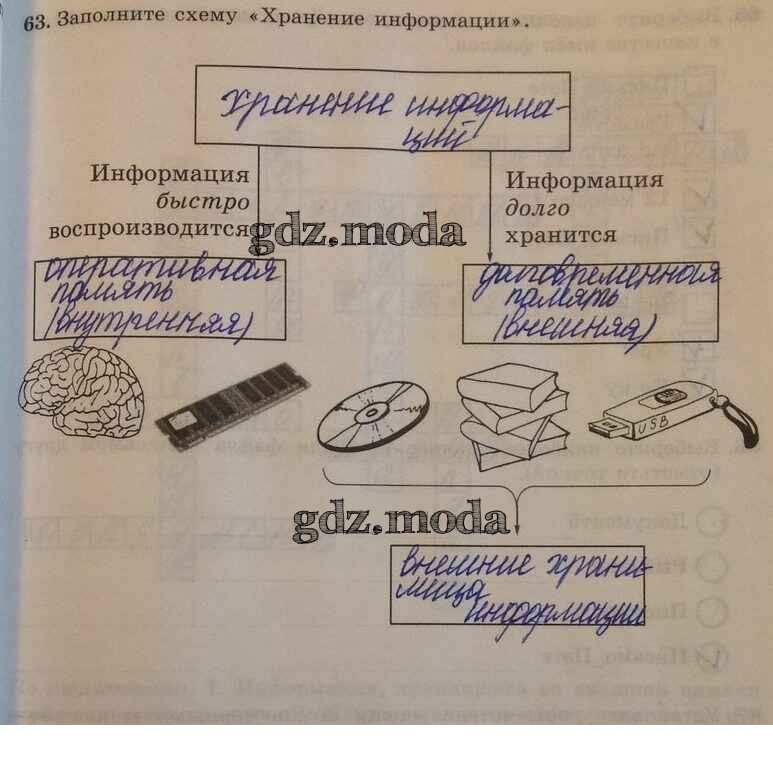 63. Заполните схему «Хранение информации».
хранение информа-
ций
Информация
быстро
воспроизводится
Информация
долго
хранится
gdz.moda
оперативная
память
(внутренняя)
долговременная
память
(внешняя)
USB
gdz.moda
внешние храни-
лища
информации